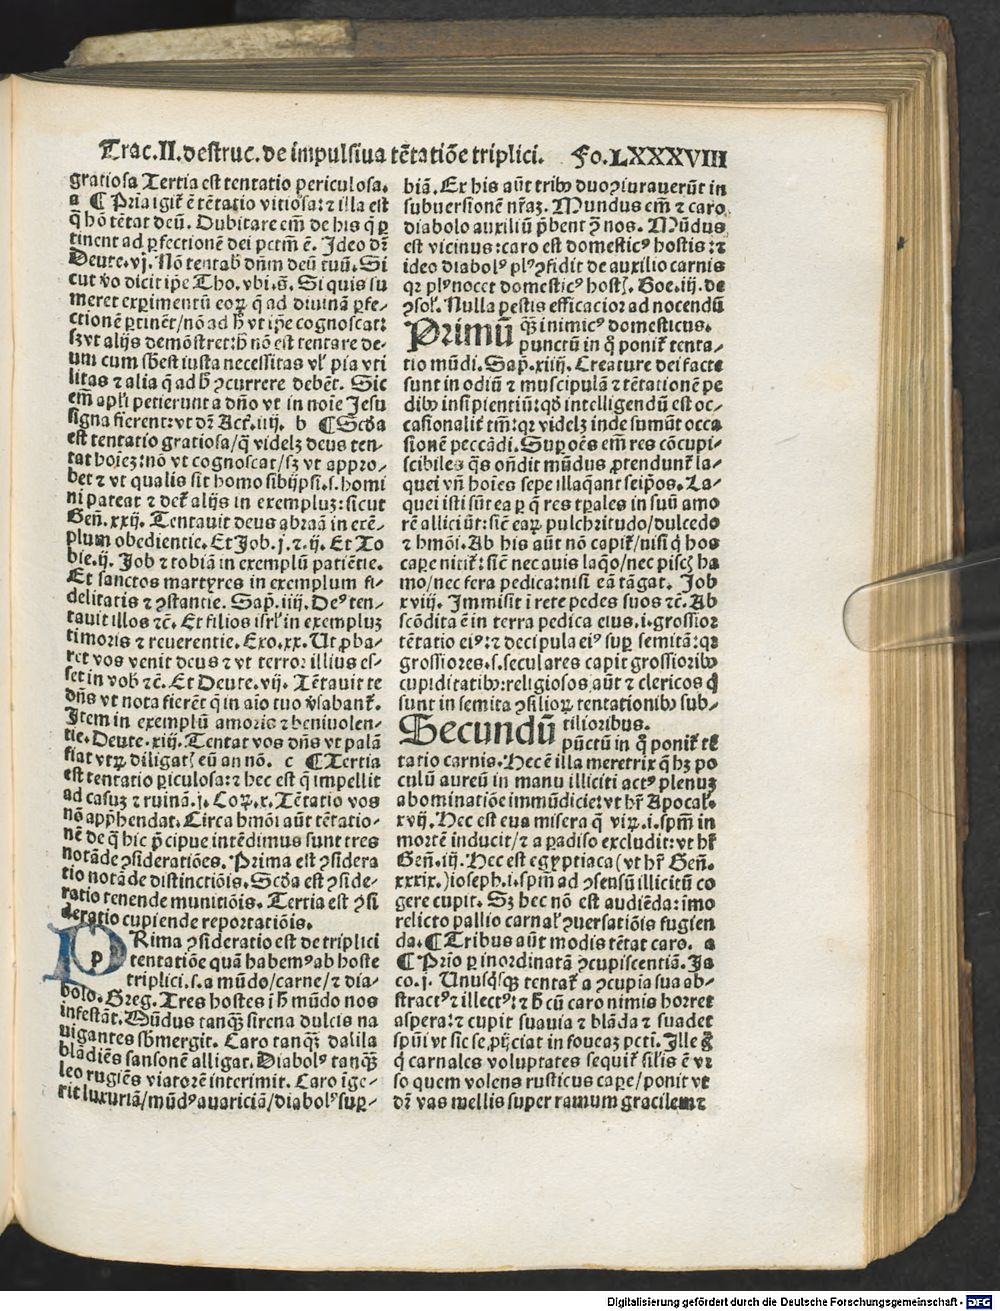 Trac.II.destruc.de impulsiua tētatiōe triplici. Fo.LXXXVIII
gratiosa Tertia est tentatio periculosa.
a ¶ Pria igit̄ ē tētatio vitiosa: ⁊ illa est
q̄ hō tētat deū. Dubitare em̄ de his q̄ ꝑ
tinent ad ꝑfectionē dei pctm̄ ē. Ideo dr̄
Deute.vj. Nō tentab̄ dn̄m deū tuū. Si
cut v̄o dicit ip̄e Tho. vbi.s̄. Si quis su
meret exꝑimentū eoꝝ q̄ ad diuinā ꝑfe-
ctionē ꝑtinēt/nō ad h̄ vt ip̄e cognoscat:
sꝫ vt alijs demōstret: h̄ nō est tentare de-
um cum sb̄est iusta necessitas vl' pia vti
litas ⁊ alia q̄ ad h̄ ꝯcurrere debēt. Sic
em̄ apl'i petierunt a dn̄o vt in noīe Jesu
signa fierent: vt dr̄ Act̄.iiij. b ¶ Scd̄a
est tentatio gratiosa/q̄ videlꝫ deus ten-
tat hoīeꝫ: nō vt cognoscat/sꝫ vt appro-
bet ⁊ vt qualis sit homo sibijpsi.s.homi
ni pateat ⁊ det̄ alijs in exempluꝫ: sicut
Gen̄.xxij. Tentauit deus abraā in exē-
plum obedientie. Et Job.j.⁊.ij. Et To
bie.ij. Job ⁊ tobiā in exemplū patiētie.
Et sanctos martyres in exemplum fi-
delitatis ⁊ ꝯstantie. Sap̄.iiij. Deꝰ ten-
tauit illos ⁊c̄. Et filios isrl' in exempluꝫ
timoris ⁊ reuerentie. Exo.xx. Ut ꝓba-
ret vos venit deus ⁊ vt terror illius es-
set in vob̄ ⁊c̄. Et Deute.vij. Tētauit te
dn̄s vt nota fierēt q̄ in aīo tuo v̄sabant̄.
Item in exemplū amoris ⁊ beniuolen-
tie. Deute.xiij. Tentat vos dn̄s vt palā
fiat vtꝝ diligatꝭ eū an nō. c ¶ Tertia
est tentatio ꝑiculosa: ⁊ hec est q̄ impellit
ad casuꝫ ⁊ ruinā.j. Coꝝ.x. Tētatio vos
nō app̄hendat. Circa hmōi aūt tētatio-
nē de q̄ hic p̄cipue intēdimus sunt tres
notāde ꝯsideratiōes. Prima est ꝯsidera
tio notāde distinctiōis. Scd̄a est ꝯside-
ratio tenende munitiōis. Tertia est ꝯsi
deratio cupiende reportatiōis.
PRima ꝯsideratio est de triplici
tentatiōe quā habemꝰ ab hoste
triplici.s.a mūdo/carne/⁊ dia-
bolo. Greg. Tres hostes ī h̄ mūdo nos
infestāt. Mūdus tanqꝫ sirena dulcis na
uigantes sb̄mergit. Caro tanqꝫ dalila
blādiēs sansonē alligat. Diabolꝰ tanqꝫ
leo rugiēs viatorē interimit. Caro īge-
rit luxuriā/mūdꝰ auariciā/diabolꝰ suꝑ-
biā. Ex his aūt tribꝰ duo ꝯiurauerūt in
subuersionē nr̄aꝫ. Mundus em̄ ⁊ caro
diabolo auxiliū p̄bent ꝯ̄ nos. Mūdus
est vicinus: caro est domesticꝰ hostis: ⁊
ideo diabolꝰ plꝰ ꝯfidit de auxilio carnis
qr̄ plꝰ nocet domesticꝰ hostꝭ. Boe.iij. de
ꝯsol'. Nulla pestis efficacior ad nocendū
qꝫ inimicꝰ domesticus.
Primū punctū in q̊ ponit̄ tenta-
tio mūdi. Sap̄.xiiij. Creature dei facte
sunt in odiū ⁊ muscipulā ⁊ tētationē pe
dibꝰ insipientiū: qd̄ intelligendū est oc-
casionalit̄ tm̄: qr̄ videlꝫ inde sumūt occa
sionē peccādi. Suꝑ oēs em̄ res cōcupi-
scibiles q̄s on̄dit mūdus ꝓtendunt̄ la-
quei vn̄ hoīes sepe illaq̄ant seip̄os. La-
quei isti sūt ea ꝑ q̄ res tp̄ales in suū amo
rē alliciūt: sic̄ eaꝝ pulchritudo/dulcedo
⁊ hmōi. Ab his aūt nō capit̄/nisi q̄ hos
caꝑe nitit̄: sic̄ nec auis laq̄o/nec piscꝭ ha
mo/nec fera pedica: nisi eā tāgat. Job
xviij. Immisit ī rete pedes suos ⁊c̄. Ab
scōdita ē in terra pedica eius.i.grossior
tētatio eiꝰ: ⁊ decipula eiꝰ suꝑ semitā: qr̄
grossiores.s.seculares capit grossioribꝰ
cupiditatibꝰ: religiosos aūt ⁊ clericos q̄
sunt in semita ꝯsilioꝝ tentationibꝰ sub-
tilioribus.
Secundū pūctū in q̊ ponit̄ tē
tatio carnis. Hec ē illa meretrix q̄ hꝫ po
culū aureū in manu illiciti actꝰ plenuꝫ
abominatiōe immūdicie: vt hr̄ Apocal'.
xvij. Hec est eua misera q̄ viꝝ.i.spm̄ in
mortē inducit/⁊ a padiso excludit: vt hr̄
Gen̄.iij. Hec est egyptiaca (vt hr̄ Gen̄.
xxxix.) ioseph.i.spm̄ ad ꝯsensū illicitū co
gere cupit. Sꝫ hec nō est audiēda: imo
relicto pallio carnal' ꝯuersatiōis fugien
da. ¶ Tribus aūt modis tētat caro. a
¶ Prīo ꝑ inordinatā ꝯcupiscentiā. Ja
co.j. Unusq̊sqꝫ tentat̄ a ꝯcupia sua ab-
stractꝰ ⁊ illectꝰ: ⁊ h̄ cū caro nimis horret
aspera: ⁊ cupit suauia ⁊ blāda ⁊ suadet
spūi vt sic se ꝓijciat in foueaꝫ pcti. Ille g̊
q̄ carnales voluptates sequit̄ sil'is ē vr
so quem volens rusticus caꝑe/ponit vt
dr̄ vas mellis super ramum gracilem ⁊
Digitalisierung gefördert durch die Deutsche Forschungsgemeinschaft - DFG